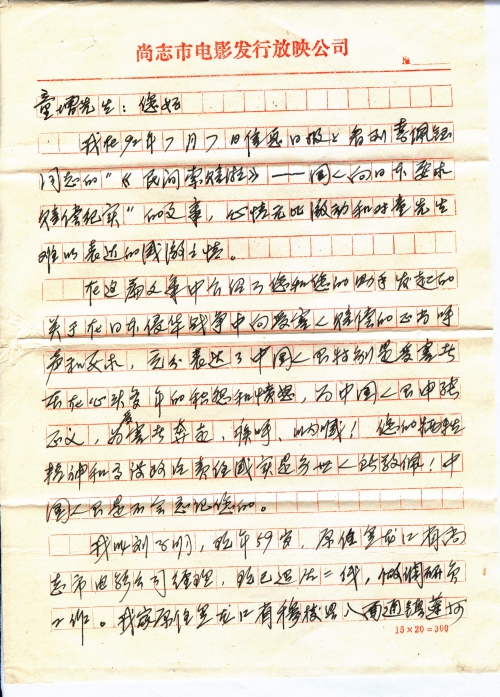 尚志市电影发行放映公司
№
童增先生：您好
我在92年7月7日信息日报上看到李佩钰
同志的“《民间索赔潮》——国人向日本要求
赔偿纪实”的文章，心情无比激动和对童先生
难以表达的感激之情。
在这篇文章中介绍了您和您的助手发起的
关于在日本侵华战争中向受害人赔偿的正当呼
声和要求，充分表达了中国人民特别是受害者
压在心头多年的积怨和愤怒，为中国人民申张
正义，为受害者奔走，疾呼、呐喊！您的牺牲
精神和高度政治责任感实是令世人所敬佩！中
国人民是不会忘记您的。
我叫刘明，现年59岁，原任黑龙江省尚
志市电影公司经理，现已退居二线，做调研员
工作。我家原住黑龙江省穆棱县八面通镇莲河
15×20=300